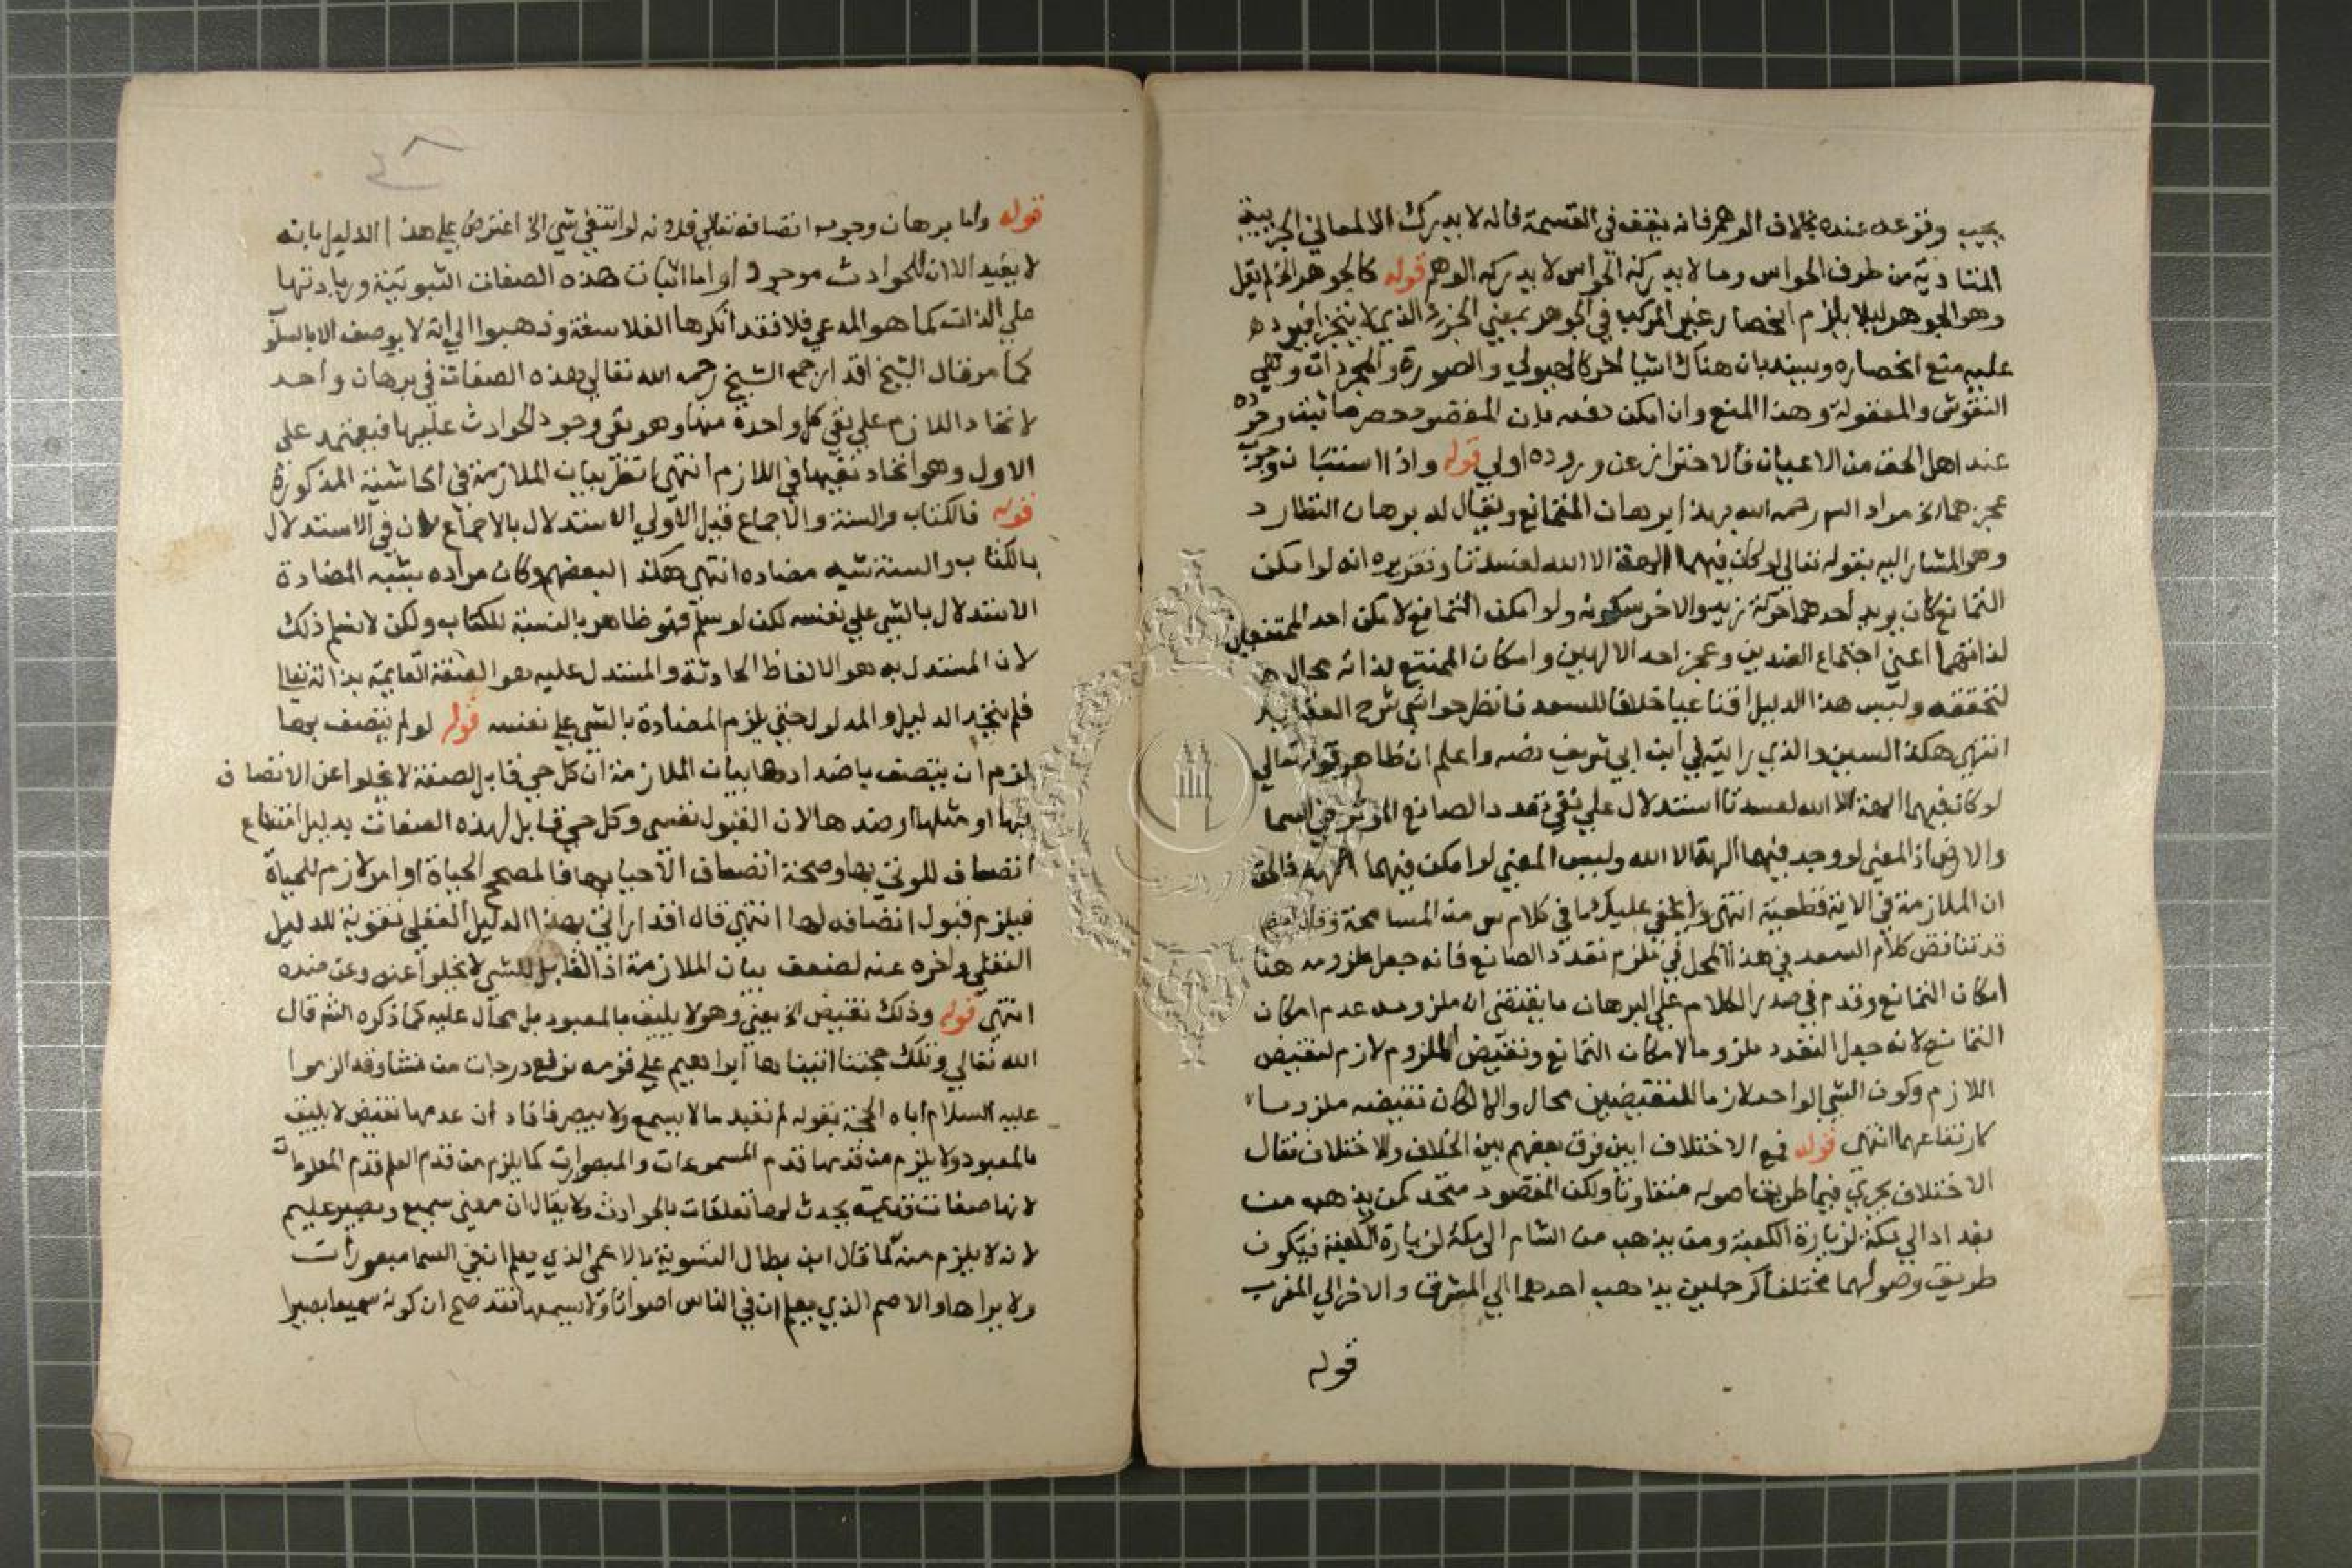 يجيب وقوعه عنده بخلاف الوهم فانه يقف في القسمة فانه لا يدرك الا المعاني الجزيية
المتادية من طرف الحواس وما لا يدركه الحواس لا يدركه الوهم قوله كالجوهر الخ لم يقل
وهو الجوهر ليلا يلزم انحصار غير المركب في الجوهر بمعني الجزء الذي لا يتجزا فيرد
عليه منع انحصاره وبسنده بان هناك اشيا اخر كالهيولي والصورة والمجردات وهي
النفوس والعقول وهذا المنع وان امكن دفعه بان المقصود حصر ما ثبت وجوده
عند اهل الحق من الاعيان فالاحتراز عن وروده اولي قوله واذا استبان وجوب
عجزهما الخ مراد الش رحمه الله بهذا برهان التمانع ويقال له برهان التطارد
وهو المشار اليه بقوله تعالي لو كان فيهما الهة الا الله لفسدتا وتقريره انه لو امكن
التمانع كان يريد احدهما حركة زيد والاخر سكونه ولو امكن التمانع لامكن احد الممتنعين
لذاتهما اعني اجتماع الضدين وعجز احد الالهين وامكان الممتنع لذاته محال
لتحققه وليس هذا الدليل اقناعيا خلافا للسعد فانظر حواشي شرح العقايد
انتهي هكذا السين والذي رايته في ابن ابي شريف نصه واعلم ان ظاهر قوله تعالي
لو كان فيهما الهة الا الله لفسدتا استدلال علي نفي تعدد الصانع الموثر في السما
والارض اذ المعني لو وجد فيهما الهة الا الله وليس المعني لو امكن فيهما الهة فالحق
ان الملازمة في الاية قطعية انتهي ولا يخفي عليك ما في كلام س من المسامحة وقال
قد تناقض كلام السعد في هذا المحل في تلزم تعدد الصانع فانه جعل ملزومه هنا
امكان التمانع وقدم في صدر الكلام علي البرهان ما يقتضي ان ملزومه عدم امكان
التمانع لانه جعل التعدد ملزوما لامكان التمانع ونقيض الملزوم لازم لنقيض
اللازم وكون الشي الواحد لازما للنقيضين محال والا لكان نقيضه ملزوما
كارتفاعهما انتهي قوله فمع الاختلاف ابين فرق بعضهم بين الخلاف والاختلاف فقال
الاختلاف يجري فيما طريق اصوله متفاوتا ولكن المقصود متحد كمن يذهب من
بغداد الي مكة لزيارة الكعبة ومن يذهب من الشام الي مكة لزيارة الكعبة فيكون
طريق وصولهما مختلفا كرجلين يذهب احدهما الي المشرق والاخر الي المغرب
قوله
قوله واما برهان وجوب اتصافه تعالي فلانه لو انتفي شي الخ اعترض علي هذا الدليل بانه
لا يفيد الا ان للحوادث موجودا واما اثبات هذه الصفات الثبوتية وزيادتها
علي الذات كما هو المدعي فلا فقد انكرها الفلاسفة وذهبوا الي انه لا يوصف الا بالسلوب
كما مر فقال الشيخ اقدار جمع الشيخ رحمه الله تعالي هذه الصفات في برهان واحد
لاتحاد اللازم علي نفي كل واحدة منها وهو نفي وجود الحوادث عليها فيعتمد علي
الاول وهو اتحاد نفيها في اللازم انتهي انظر بيان الملازمة في الحاشية المذكورة
قوله فالكتاب والسنة والاجماع قيل الاولي الاستدلال بالاجماع لان في الاستدلال
بالكتاب والسنة شبه مصاده انتهي هكذا البعضهم وكان مراده بشبه المصادرة
الاستدلال بالشي علي نفسه لكن لو سلم فهو ظاهر بالنسبة للكتاب ولكن لا نسلم ذلك
لان المستدل به هو الالفاظ الحادثة والمستدل عليه هو الصفة القايمة بذاته تعالي
فلم يتحد الدليل والمدلول حتي يلزم المصادرة بالشي علي نفسه قوله لو لم يتصف بها
لزم ان يتصف باضدادها بيان الملازمة ان كل حي قابل لصفة لا يخلو عن الاتصاف
بها او مثلها او ضدها لان القبول نفسي وكل حي قابل لهذه الصفات بدليل امتناع
اتصاف الموتي بها وصحة اتصاف الاحيا بها فالمصحح الحياة او امر لازم للحياة
فيلزم قبول اتصافه لها انتهي قال اقدار اتي بهذا الدليل العقلي تقوية للدليل
النقلي واخره عنه لضعف بيان الملازمة اذ القابل للشي لا يخلوا عنه وعن ضده
انتهي قوله وذلك نقيض الخ يعني وهو لا يليق بالمعبود بل محال عليه كما ذكره الش قال
الله تعالي وتلك حجتنا اتيناها ابراهيم علي قومه نرفع درجات من نشا وقد الزموا
عليه السلام اباه الحجة بقوله لم تعبد ما لا يسمع ولا يبصر فافاد ان عدمها نقيض لا يليق
بالمعبود ولا يلزم من قدمها قدم المسموعات والمبصرات كما يلزم من قدم العلم قدم المعلومات
لانها صفات قديمة يحدث لها تعلقات بالحوادث ولا يقال ان معني سميع وبصير عليم
لانه لا يلزم منه كما قال ابن بطال التسوية بالاعمي الذي يعلم ان في السما مبصرات
ولا يراها والاصم الذي يعلم ان في الناس اصواتا ولا يسمعها فقد صح ان كونه سميعا بصيرا